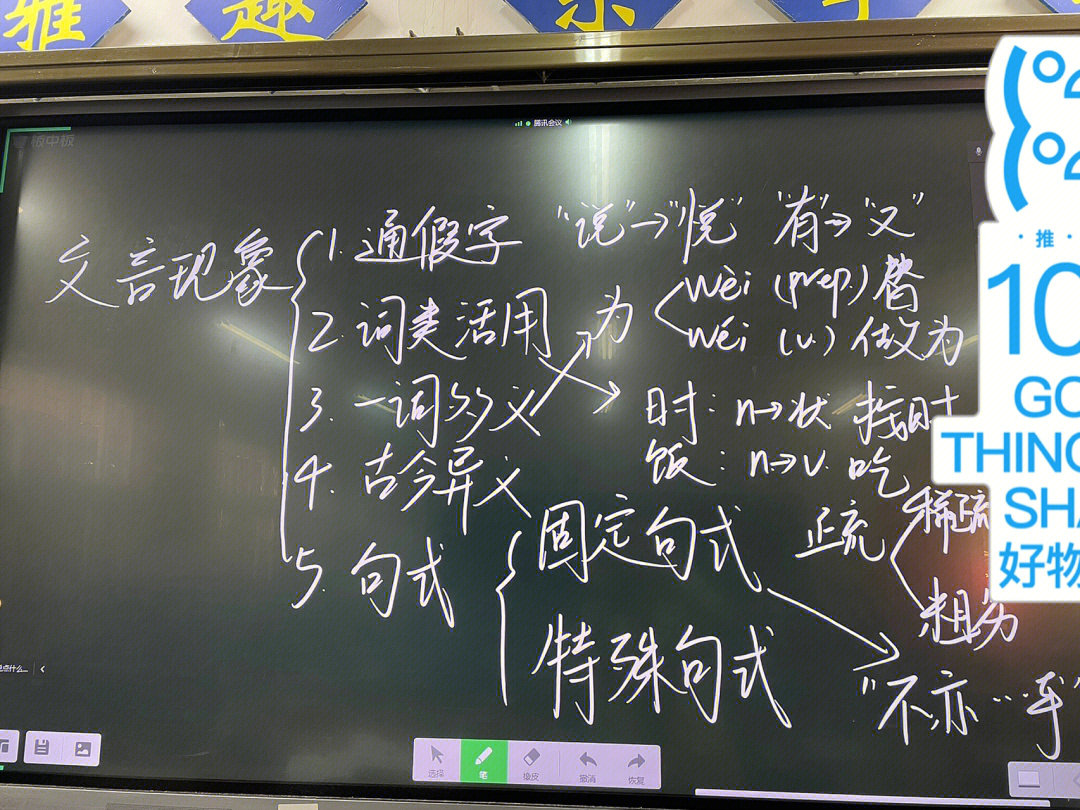 雅 趣 乐 学
板中板
腾讯会议
文言现象
1. 通假字 "说"→"悦" "有"→"又"
2. 词类活用
为
wèi (prep.) 替
wéi (v.) 做为
3. 一词多义
时: n→状 按时
4. 古今异义
饭: n→v. 吃
5. 句式
固定句式
疏
稀疏
粗劣
特殊句式
"不亦…乎"
选择 笔 橡皮 撤消 恢复
·推·
10
GO
THING
SHA
好物